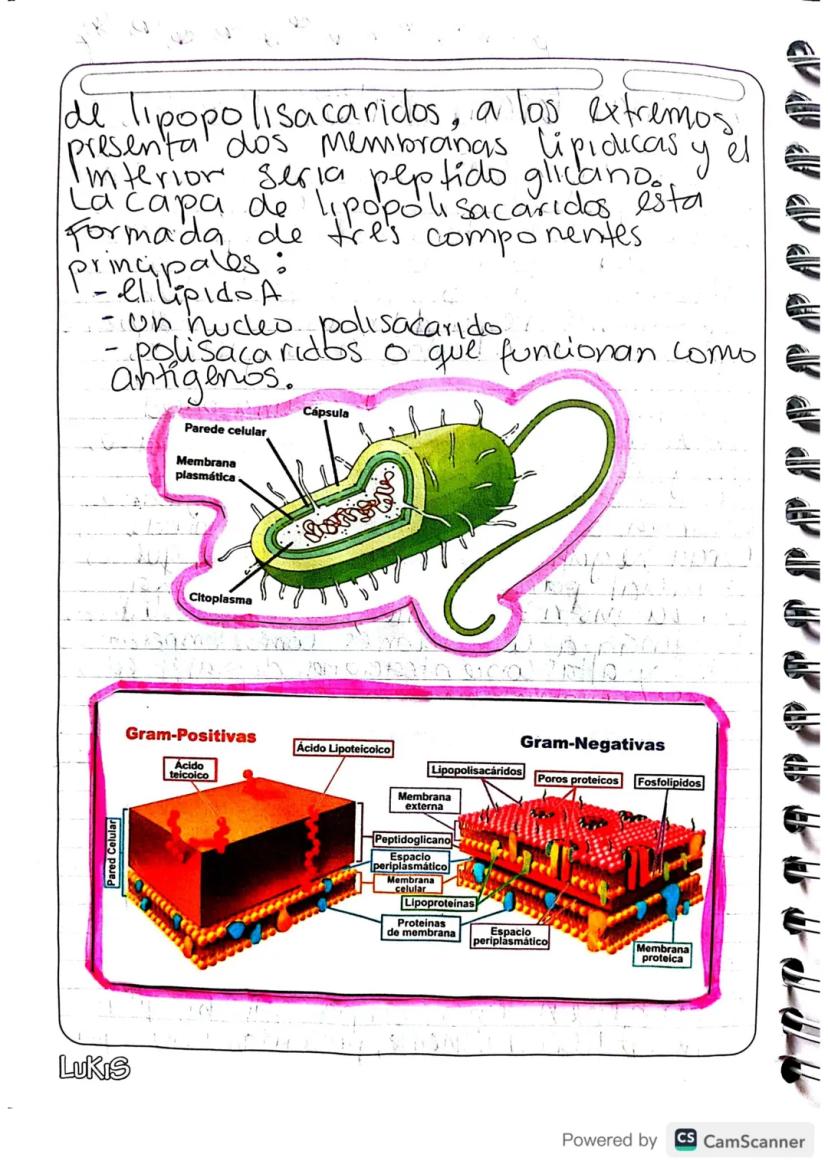 de lipopolisacaridos, a los extremos
presenta dos membranas lipidicas y el
interior seria peptido glicano.
La capa de lipopolisacaridos esta
formada de tres componentes
principales:
- el lípido A
- un nucleo polisacarido
- polisacaridos o que funcionan como
antígenos.
Cápsula
Parede celular
Membrana
plasmática
Citoplasma
Gram-Positivas
Gram-Negativas
Ácido
teicoico
Ácido Lipoteicoico
Lipopolisacáridos
Poros proteicos
Fosfolípidos
Membrana
externa
Pared Celular
Peptidoglicano
Espacio
periplasmático
Membrana
celular
Lipoproteínas
Proteínas
de membrana
Espacio
periplasmático
Membrana
proteica
LuKiS
Powered by CS CamScanner